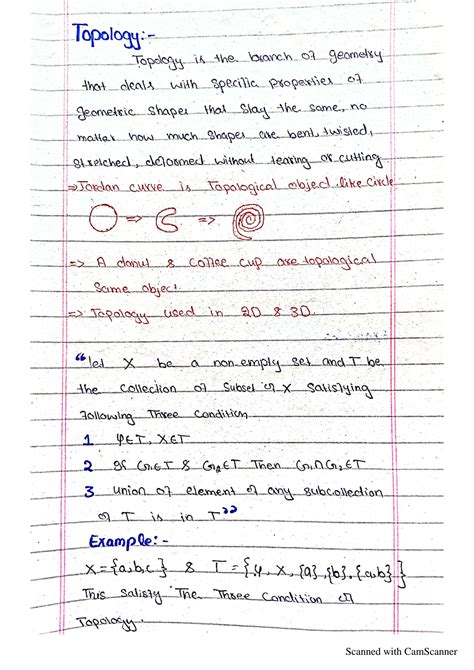 Topology:-
Topology is the branch of geometry
that deals with specific properties of
geometric shapes that stay the same, no
matter how much shapes are bent, twisted,
stretched, deformed without tearing or cutting
⇒Jordan curve is Topological object like circle
⇒ ⇒
⇒ A donut & coffee cup are topological
same objec
⇒ Topology used in 2D & 3D.
"let X be a non empty set and T be
the collection of subset of X satisfying
following Three Condition
1 φ∈T, X∈T
2 If G₁∈T & G₂∈T Then G₁∩G₂∈T
3 union of element of any subcollection
of T is in T"
Example:-
X={a,b,c} & T={φ, X, {a},{b},{a,b}}
This Satisfy The Three Condition of
Topology.
Scanned with CamScanner